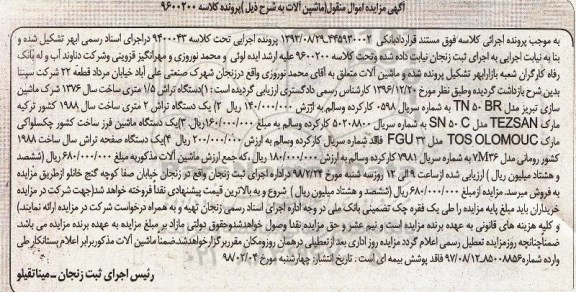 آگهی مزایده اموال منقول(ماشین آلات به شرح ذیل )پرونده کلاسه ۹۶۰۰۲۰۰
به موجب پرونده اجرائی کلاسه فوق مستند قراردادبانکی ۴۴۵۹۳۰۰۰۲-۱۳۹۲/۰۸/۲۹ پرونده اجرایی تحت کلاسه ۹۴۰۰۰۴۳ دراجرای اسناد رسمی ابهر تشکیل شده و
بنا به نیابت اجرایی به اجرای ثبت زنجان نیابت داده شده وتحت کلاسه ۹۶۰۰۲۰۰ علیه ارشد ایده لوئی و محمد نوروزی و مهرانگیز قزوینی وشرکت دناوند آب و له بانک
رفاه کارگران شعبه بازارابهر تشکیل پرونده شده و ماشین آلات متعلق به آقای محمد نوروزی واقع درزنجان شهرک صنعتی علی آباد خیابان مرداد قطعه ۲۲ شرکت سپنتا
بدین شرح بازداشت گردیده وطبق نظر مورخ ۱۳۹۶/۱۲/۲۰ کارشناس رسمی دادگستری ارزیابی گردیده است : ۱)دستگاه تراش ۱/۵ متری ساخت سال ۱۳۷۶ شرکت ماشین
سازی تبریز مدل TN ۵۰ BR به شماره سریال ۰۵۹۸ کارکرده وسالم به ارزش ۱۴۰/۰۰۰/۰۰۰ ریال ۲) یک دستگاه تراش ۲ متری ساخت سال ۱۹۸۸ کشور ترکیه
مارک TEZSAN مدل SN ۵۰ C به شماره سریال ۵۰۲۰۸۸۰۰ کارکرده وسالم به مبلغ ۱۶۰/۰۰۰/۰۰۰ریال. ۳)یک دستگاه ماشین فرز ساخت کشور چکسلواکی
مارک TOS OLOMOUC مدل FGU ۳۲ فاقد شماره سریال کارکرده وسالم به ارزش ۲۰۰/۰۰۰/۰۰۰ ریال ۴)یک دستگاه صفحه تراش سال ساخت ۱۹۸۸
کشور رومانی مدل ۷M۳۶ به شماره سریال ۷۹۸۱ کارکرده وسالم به ارزش ۱۸۰/۰۰۰/۰۰۰ ریال ،که جمع ارزش ماشین آلات مذکوربه مبلغ ۶۸۰/۰۰۰/۰۰۰ ریال (ششصد
و هشتاد میلیون ریال ) ارزیابی شده ازساعت ۹ الی ۱۲ روزسه شنبه مورخ ۹۸/۲/۲۴ دراداره اجرای ثبت زنجان واقع در زنجان خیابان صفا کوچه گنج خانلو ازطریق مزایده
به فروش میرسد. مزایده ازمبلغ ۶۸۰/۰۰۰/۰۰۰ ریال (ششصد و هشتاد میلیون ریال ) شروع و به بالاترین قیمت پیشنهادی نقدا فروخته خواهد شد(جهت شرکت در مزایده
خریداران باید مبلغ پایه مزایده را طی یک فقره چک تضمینی بانک ملی در وجه اداره اجرای اسناد رسمی زنجان تهیه و به همراه درخواست شرکت در مزایده ارائه نمایند)
و کلیه هزینه های قانونی به عهده برنده مزایده است و نیم عشر و حق مزایده نقدا وصول خواهدشدوحقوق دولتی مازاد بر مبلغ مزایده به عهده برنده مزایده می باشد
ضمناچنانچه روزمزایده تعطیل رسمی اعلام گردد مزایده روز اداری بعدازتعطیلی درهمان روزومکان مقرربرگزارخواهدشدضمنا ماشین آلات مذکوربرابر اعلام بستانکار طی
وارده شماره۸۵۰۰۸۸۵۶-۹۷/۰۸/۱۲ فاقد پوشش بیمه ای است . تاریخ انتشار: چهارشنبه مورخ ۹۸/۰۲/۰۴
رئیس اجرای ثبت زنجان – میناتقیلو